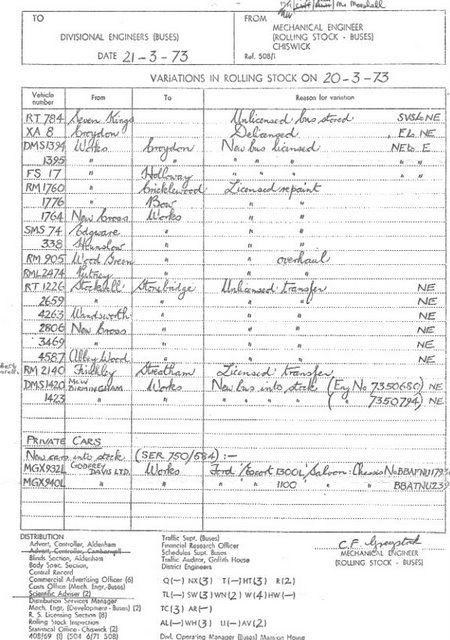 TO
FROM
DIVISIONAL ENGINEERS (BUSES)
MECHANICAL ENGINEER
(ROLLING STOCK - BUSES)
CHISWICK
DATE 21-3-73
Ref. 508/1
VARIATIONS IN ROLLING STOCK ON 20-3-73
Vehicle number From To Reason for variation
RT 784 Seven Kings Unlicensed bus stored SVS to NE
XA 8 Croydon Delicensed E to NE
DMS1394 Works Croydon New bus licensed NE to E
1395 " " " " " " "
FS 17 " Holloway " " "
RM 1760 " Cricklewood Licensed repaint
1776 " Bow " "
1764 New Cross Works " "
SMS 74 Edgware " " "
338 Hounslow " " "
RM 905 Wood Green " " overhaul
RML2474 Putney " " "
RT 1226 Stockwell Stonebridge Unlicensed transfer NE
2659 " " " " NE
4263 Wandsworth " " " NE
2806 New Cross " " " NE
3469 " " " " NE
4587 Abbey Wood " " " NE
RM 2140 Finchley Streatham Licensed transfer
DMS1420 MCW BIRMINGHAM Works New bus into stock (Eng No 7350650) NE
1423 " " " " " ( " 7350794) NE
PRIVATE CARS
New cars into stock (SER 750/584) :-
MGX932L GODFREY DAVIS LTD. Works Ford Escort 1300L Saloon: Chassis No BBATNU1793
MGX940L " " " " 1100 " " BBATNU239
DISTRIBUTION
Advert. Controller, Aldenham
Advert. Controller, Camberwell
Blinds Section, Aldenham
Body Spec. Section,
Central Record
Commercial Advertising Officer (6)
Costs Office (Mech. Engr.-Buses)
Scientific Adviser (2)
Distribution Services Manager
Mech. Engr. (Development - Buses) (2)
R. S. Licensing Section (8)
Rolling Stock Inspection
Statistical Office - Chiswick (2)
Traffic Supt. (Buses)
Financial Research Officer
Schedules Supt. Buses
Traffic Auditor, Griffith House
District Engineers
Q(-) NX(3) T(-) HT(3) R(2)
TL(-) SW(3) WN(2) W(4) HW(-)
TC(3) AR(-)
AL(-) WH(3) U(-) AV(2)
Divl. Operating Manager (Buses) Mansion House
MECHANICAL ENGINEER
(ROLLING STOCK - BUSES)